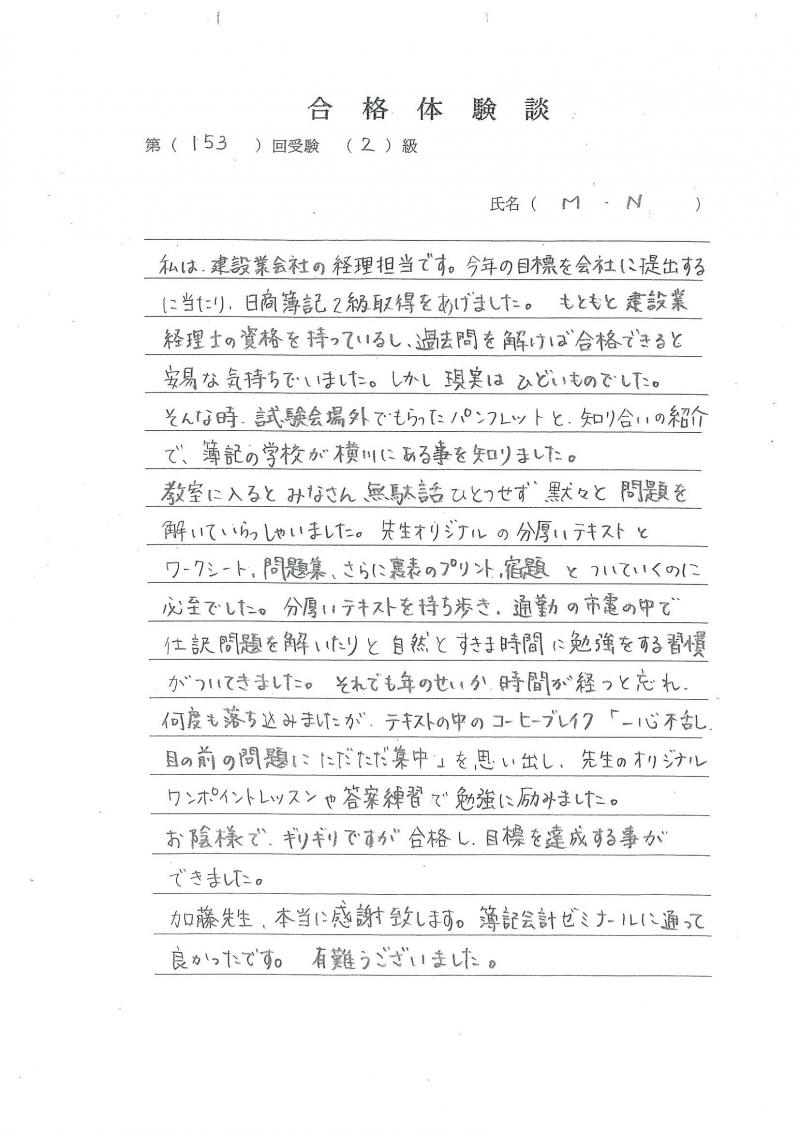 合格体験談
第（153）回受験（2）級
氏名（M．N）
私は、建設業会社の経理担当です。今年の目標を会社に提出する
に当たり、日商簿記2級取得をあげました。　もともと建設業
経理士の資格を持っているし、過去問を解けば合格できると
安易な気持ちでいました。しかし現実はひどいものでした。
そんな時、試験会場外でもらったパンフレットと、知り合いの紹介
で、簿記の学校が横川にある事を知りました。
教室に入るとみなさん無駄話ひとつせず黙々と問題を
解いていらっしゃいました。先生オリジナルの分厚いテキストと
ワークシート、問題集、さらに裏表のプリント、宿題とついていくのに
必至でした。分厚いテキストを持ち歩き、通勤の市電の中で
仕訳問題を解いたりと自然とすきま時間に勉強をする習慣
がついてきました。それでも年のせいか、時間が経つと忘れ、
何度も落ち込みましたが、テキストの中のコーヒーブレイク「一心不乱、
目の前の問題にただただ集中」を思い出し、先生のオリジナル
ワンポイントレッスンや答案練習で勉強に励みました。
お陰様で、ギリギリですが合格し、目標を達成する事が
できました。
加藤先生、本当に感謝致します。簿記会計ゼミナールに通って
良かったです。　有難うございました。